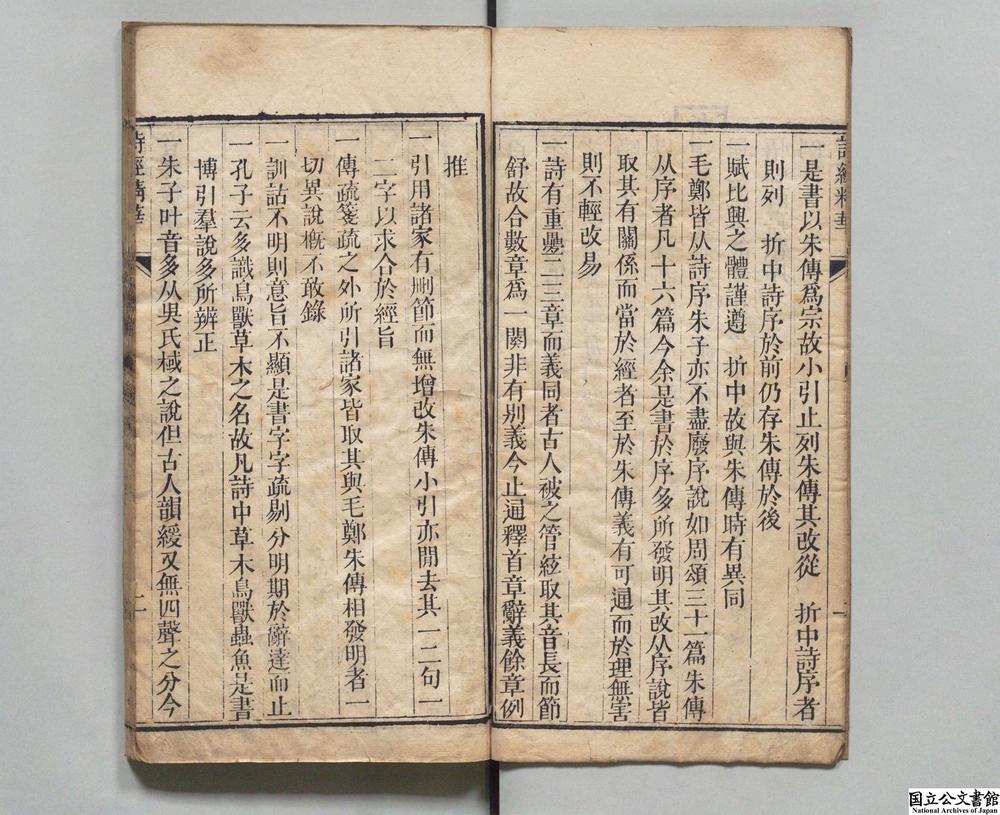 詩經精華
一是書以朱傳爲宗故小引止列朱傳其改從　折中詩序者
則列　折中詩序於前仍存朱傳於後
一賦比興之體謹遵　折中故與朱傳時有異同
一毛鄭皆从詩序朱子亦不盡廢序說如周頌三十一篇朱傳
从序者凡十六篇今余是書於序多所發明其改从序說皆
取其有關係而當於經者至於朱傳義有可通而於理無害
則不輕改易
一詩有重疊二三章而義同者古人被之管絃取其音長而節
舒故合數章爲一闋非有別義今止通釋首章辭義餘章例
一
推
一引用諸家有刪節而無增改朱傳小引亦閒去其一二句一
二字以求合於經旨
一傳疏箋疏之外所引諸家皆取其與毛鄭朱傳相發明者一
切異說概不敢錄
一訓詁不明則意旨不顯是書字字疏剔分明期於辭達而止
一孔子云多識鳥獸草木之名故凡詩中草木鳥獸蟲魚是書
博引羣說多所辨正
一朱子叶音多从吳氏棫之說但古人韻緩又無四聲之分今
詩經精華
二
国立公文書館
National Archives of Japan